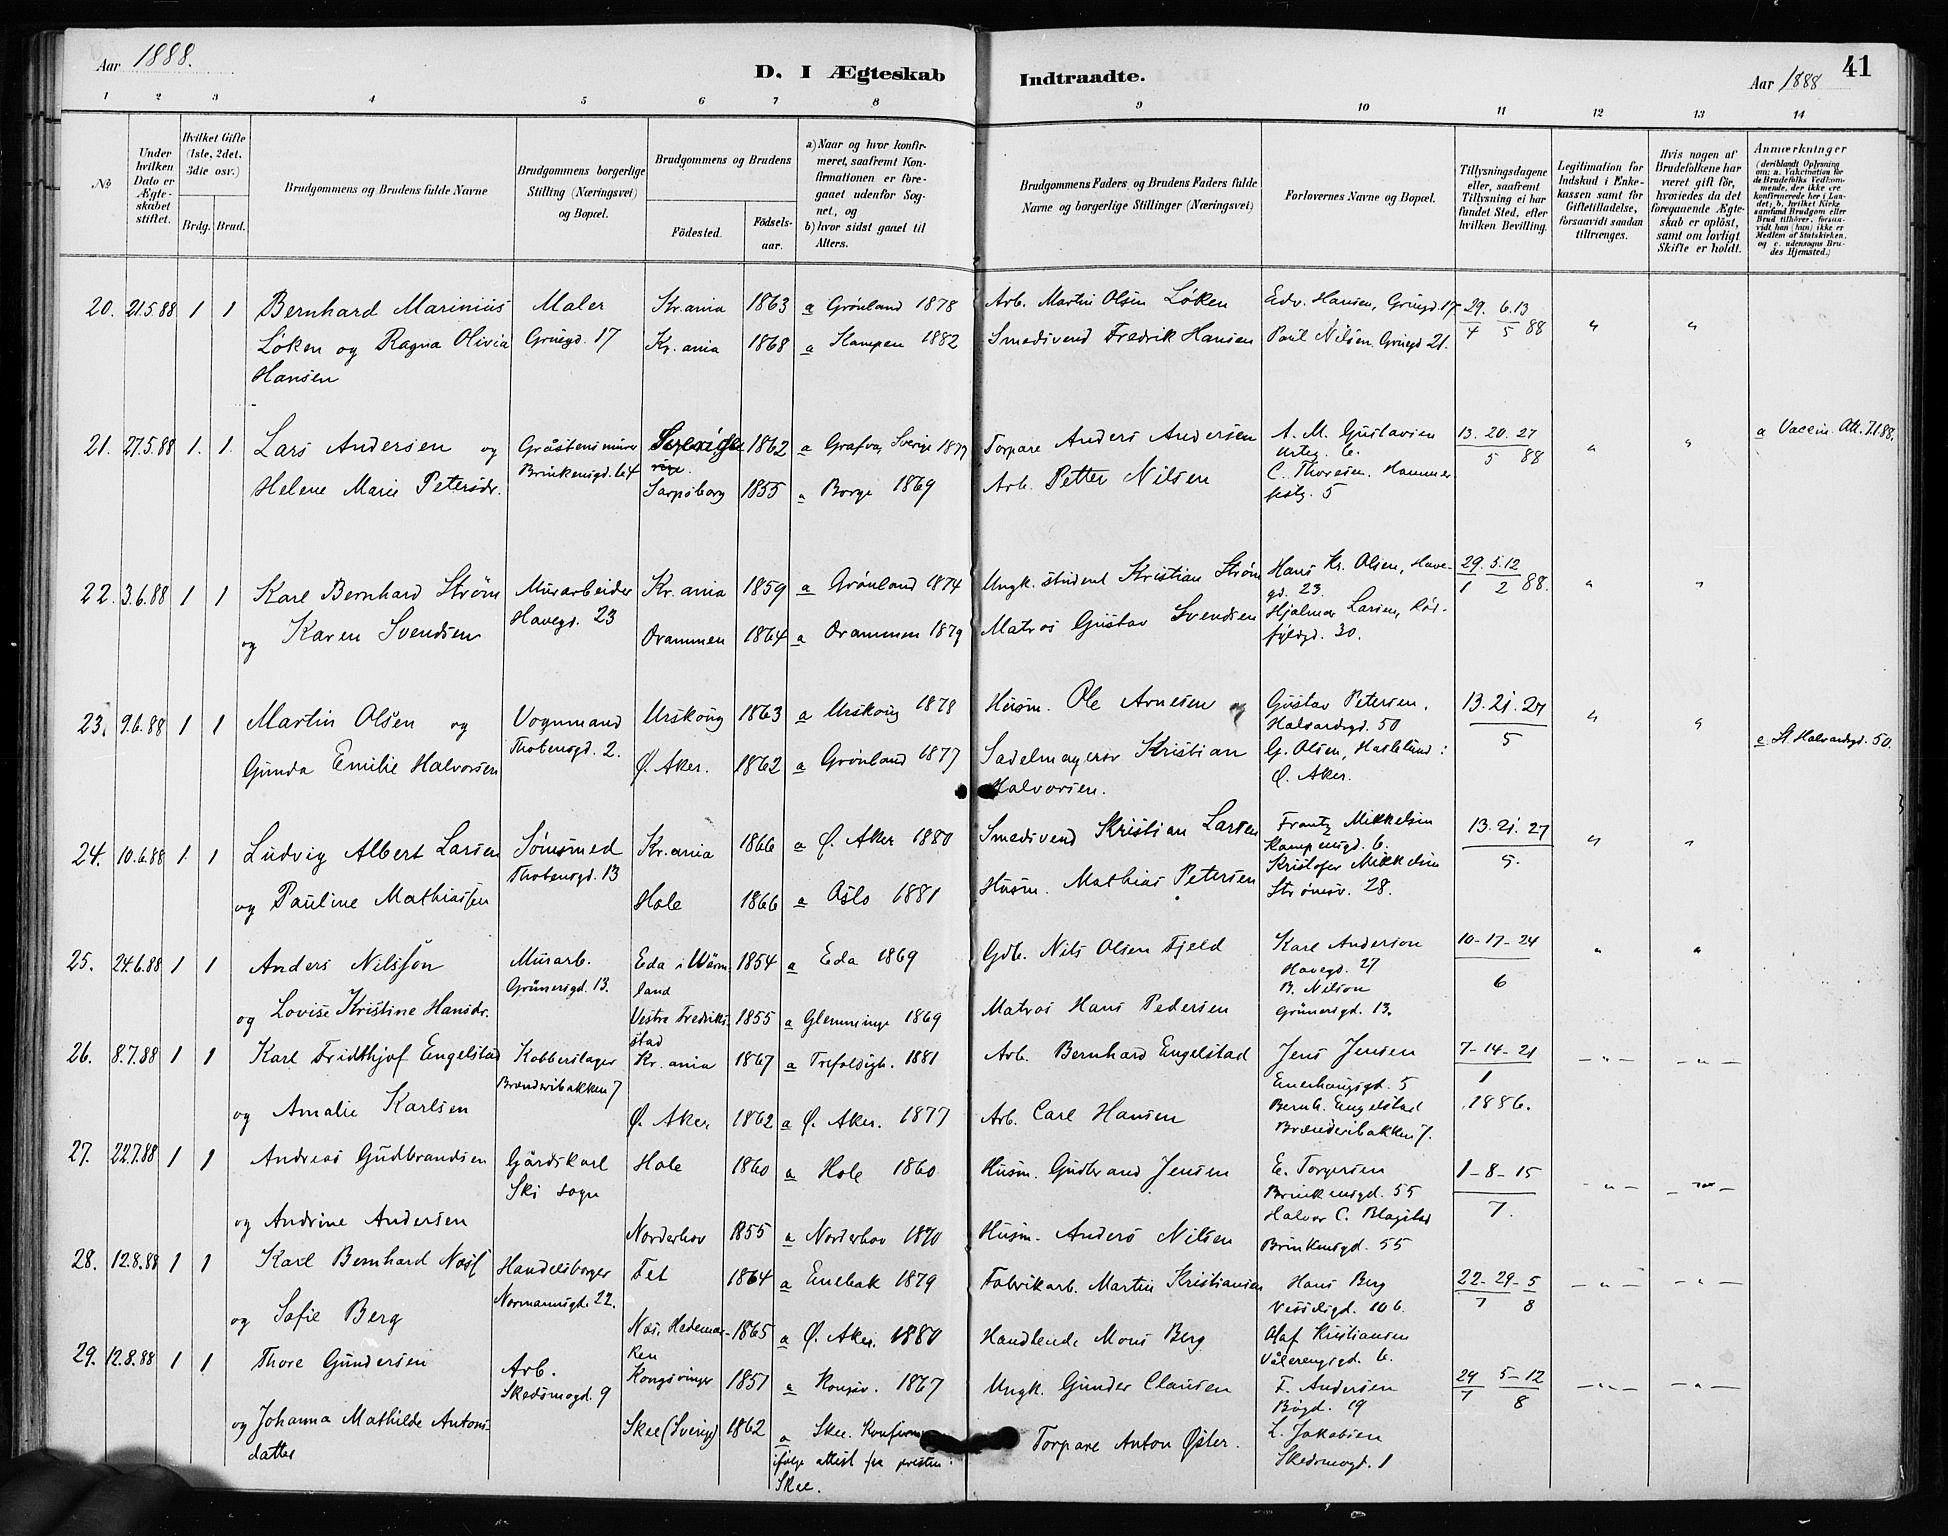 Aar 1888.
D. I Ægteskab Indtraadte.
Aar 1888
41
1 2 3 4 5 6 7 8 9 10 11 12 13 14
No
Under hvilken Dato er Ægteskabet stiftet.
Hvilket Gifte (1ste, 2det, 3die osv.)
Brdg. Brud.
Brudgommens og Brudens fulde Navne
Brudgommens borgerlige Stilling (Næringsvei) og Bopæl.
Brudgommens og Brudens
Fødested.
Fødselsaar.
a) Naar og hvor konfirmeret, saafremt Konfirmationen er foregaaet udenfor Sognet, og
b) hvor sidst gaaet til Alters.
Brudgommens Faders og Brudens Faders fulde Navne og borgerlige Stillinger (Næringsvei)
Forlovernes Navne og Bopæl.
Tillysningsdagene eller, saafremt Tillysning ei har fundet Sted, efter hvilken Bevilling.
Legitimation for Indskud i Enkekassen samt for Giftetilladelse, forsaavidt saadan tiltrænges.
Hvis nogen af Brudefolkene har været gift før, hvoriedes da det foregaaende Ægteskab er opløst, samt om lovligt Skifte er holdt.
Anmærkninger
(deriblandt Oplysning om: a. Vakcination for de Brudefolks Vedkommende, der ikke ere konfirmerede her i Landet; b. hvilket Kirkesamfund Brudgom eller Brud tilhører, forsaavidt han (hun) ikke er Medlem af Statskirken, og c. udensogns Brudes Hjemsted.)
20. 21.5.88 1 1 Bernhard Marinius Maler Kr.ania 1863 a Grønland 1878 Arb. Martin Olsen Løken Edv. Hansen, Grüegd. 17 29. 6. 13
Løken og Ragna Olivia Grüegd. 17 Kr. ania 1868 a Kampen 1882 Smedsvend Fredrik Hansen Paul Nilsen, Grüegd 21. 4 5 88 " "
Hansen
21. 27.5.88 1. 1. Lars Andersen og Gråstensmurer Sverige 1862 a Grafva, Sverige 1877 Torpare Anders Andersen A. M. Gustavsen 13. 20. 27 " " a Vaccin. Att. 7.1.88.
Brinkensgd. 64 Urteg. 6. 5 88
Helene Marie Petersdr. Sarpsborg 1855 a Borge 1869 Arb. Petter Nilsen C. Thoresen, Hammerfestg. 5
22. 3.6.88 1 1 Karl Bernhard Strøm Murarbeider Kr. ania 1859 a Grønland 1874 Ungk. student Kristian Strøm Hans Kr. Olsen, Have- 29. 5. 12 " "
Havegd. 23 gd. 23. 1 2 88.
og Karen Svendsen Drammen 1864 a Drammen 1879 Matros Gustav Svendsen Hjalmar Larsen,
30.
23. 9.6.88 1 1 Martin Olsen og Vognmand Urskoug 1863 a Urskoug 1878 Husm. Ole Arnesen Gustav Petersen, 13. 21. 27 " "
Thobensgd. 2. Halvardsgd. 50 5 c St. Halvardsgd. 50.
Gunda Emilie Halvorsen Ø. Aker. 1862 a Grønland 1877 Sadelmagersv Kristian G. Olsen, Haslelund:
Halvorsen. Ø. Aker.
24. 10.6.88 1 1 Ludvig Albert Larsen Sømsmed Kr. ania 1866 a Ø. Aker 1880 Smedsvend Kristian Larsen Frantz Mikkelsen 13. 21. 27 " "
Thobensgd. 13 Kampensgd. 6. 5.
og Pauline Mathiassen Hole 1866 a Oslo 1881 Husm. Mathias Petersen Kristofer Mikkelsen
Strømsv. 28.
25. 24.6.88 1 1 Anders Nilsson Murarb. Eda i Wärm 1854 a Eda 1869 Gdb. Nils Olsen Fjeld Karl Anderson 10-17-24 " "
Grünersgd. 13. land Havegd. 27 6
og Lovise Kristine Hansdr. Vestre Fredriks- 1855 a Glemminge 1869 Matros Hans Pedersen B. Nilson
stad Grünersgd. 13.
26. 8.7.88 1 1 Karl Fridthjof Engelstad Kobberslager Kr. ania 1867 a Trefoldigh. 1881 Arb. Bernhard Engelstad Jens Jensen 7-14-21 - " - - " -
Brænderibakken 7 Enerhaugsgd. 5 1
og Amalie Karlsen Ø. Aker. 1862 a Ø. Aker. 1877 Arb. Carl Hansen Bernh. Engelstad 1886.
Brænderibakken 7.
27. 22.7.88 1 1 Andreas Gudbrandsen Gårdskarl Hole 1860 a Hole 1860 Husm. Gudbrand Jensen E. Torgersen 1-8-15 - " - - " -
Ski sogn Brinkensgd. 55 7.
og Andrine Andersen Norderhov 1855 a Norderhov 1870 Husm. Anders Nilsen Halvor C. Blagstad
Brinkensgd. 55
28. 12.8.88 1 1 Karl Bernhard Næss Handelsborger Fet 1864 a Enebak 1879 Fabrikarb. Martin Kristiansen Hans Berg 22-29-5 - " - - " -
Normannsgd. 22. 106. 7 8
og Sofie Berg Næs, Hedemar- 1865 a Ø. Aker. 1880 Handlende Mons Berg Olaf Kristiansen
ken Vålerengsgd. 6.
29. 12.8.88 1 1 Thore Gundersen Arb. Kongsvinger 1851 a Kongsv. 1867 Ungk. Gunder Clausen F. Andersen 29 5-12 - " - - " -
Skedsmogd. 9 Bøgd. 19 7 8
og Johanna Mathilde Antons- Skee (Sverige) 1862 a Skee. Konfirm Torpare Anton Øster. L. Jakobsen
datter ifølge attest fra presten i Skedsmogd. 1
Skee.